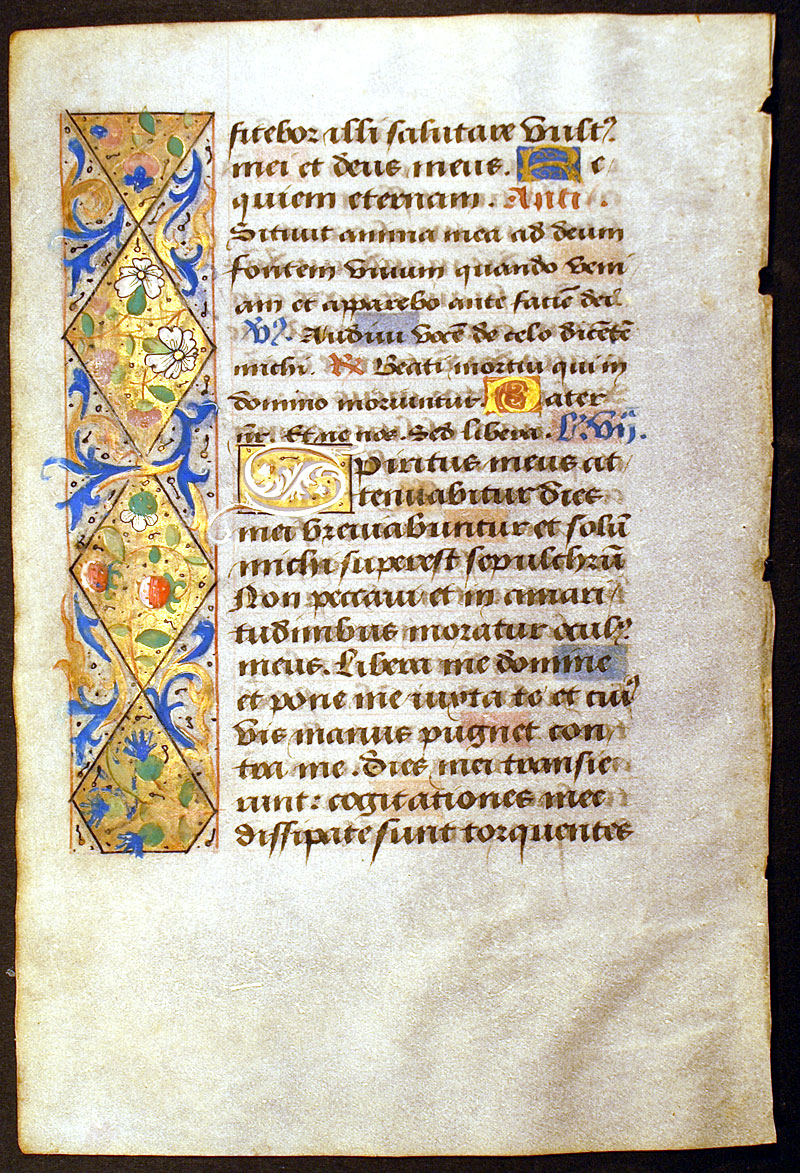 fitebor illi salutare vultꝰ
mei et deus meus. Re
quiem eternam. Anti.
Sitiuit anima mea ad deum
fontem viuum quando veni
am et apparebo ante faciē dei
℣. Audiui vocē de celo dicētē
michi. ℟ Beati mortui qui in
domino moriuntur. Pater
nr̄. Et ne nos. Sed libera. Lc̄. vij.
Spiritus meus at
tenuabitur dies
mei breuiabuntur et solū
michi superest sepulchrū
Non peccaui et in amari
tudinibus moratur oculꝰ
meus. Libera me domine
et pone me iuxta te et cuiꝰ
vis manus pugnet con
tra me. Dies mei transie
runt: cogitationes mee
dissipate sunt torquentes